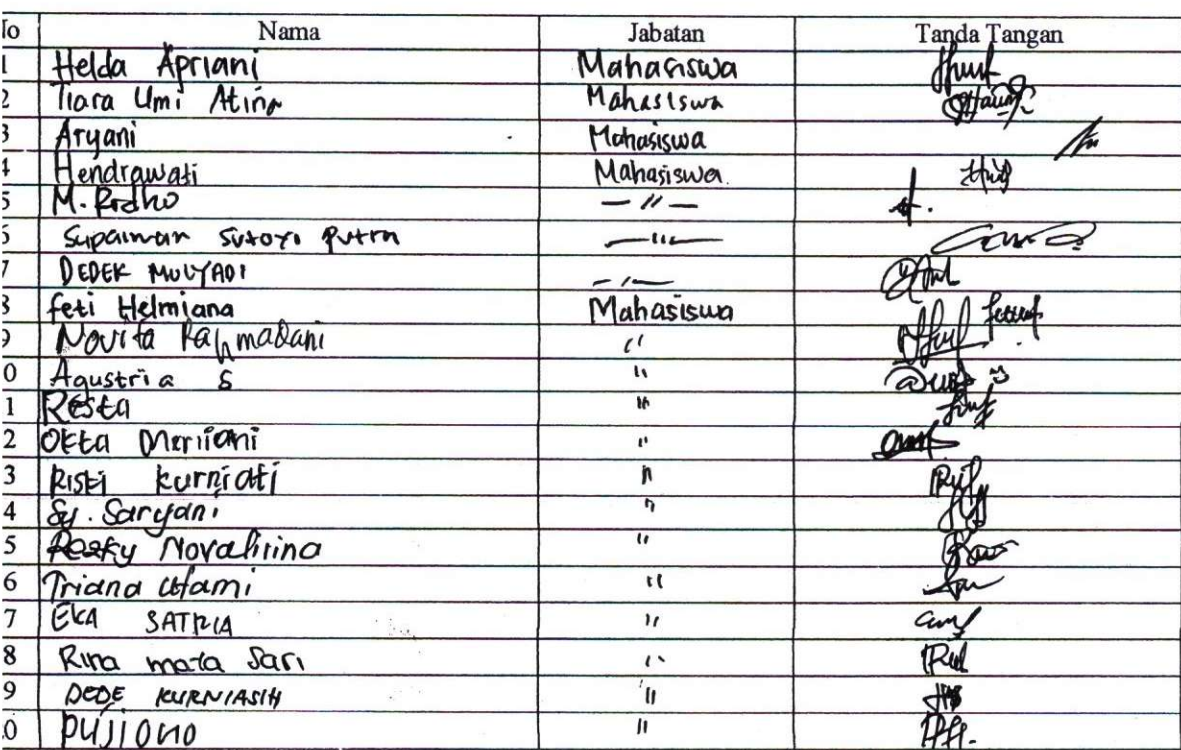 No Nama Jabatan Tanda Tangan
1 Helda Apriani Mahasiswa
2 Tiara Umi Atina Mahasiswa
3 Aryani Mahasiswa
4 Hendrawati Mahasiswa
5 M. Ridho — 〃 —
6 Suparman Sutoyo Putra — 〃 —
7 DEDEK MULYADI — 〃 —
8 feti Helmiana Mahasiswa
9 Novita Rahmadani 〃
10 Agustria S 〃
11 Resta 〃
12 Okta Meriiani 〃
13 Riski kurniati 〃
14 Sy. Saryani 〃
15 Rezky Novalirina 〃
16 Triana utami 〃
17 EKA SATRIA 〃
18 Rina mala Sari 〃
19 DEDE KURNIASIH 〃
20 pujiono 〃